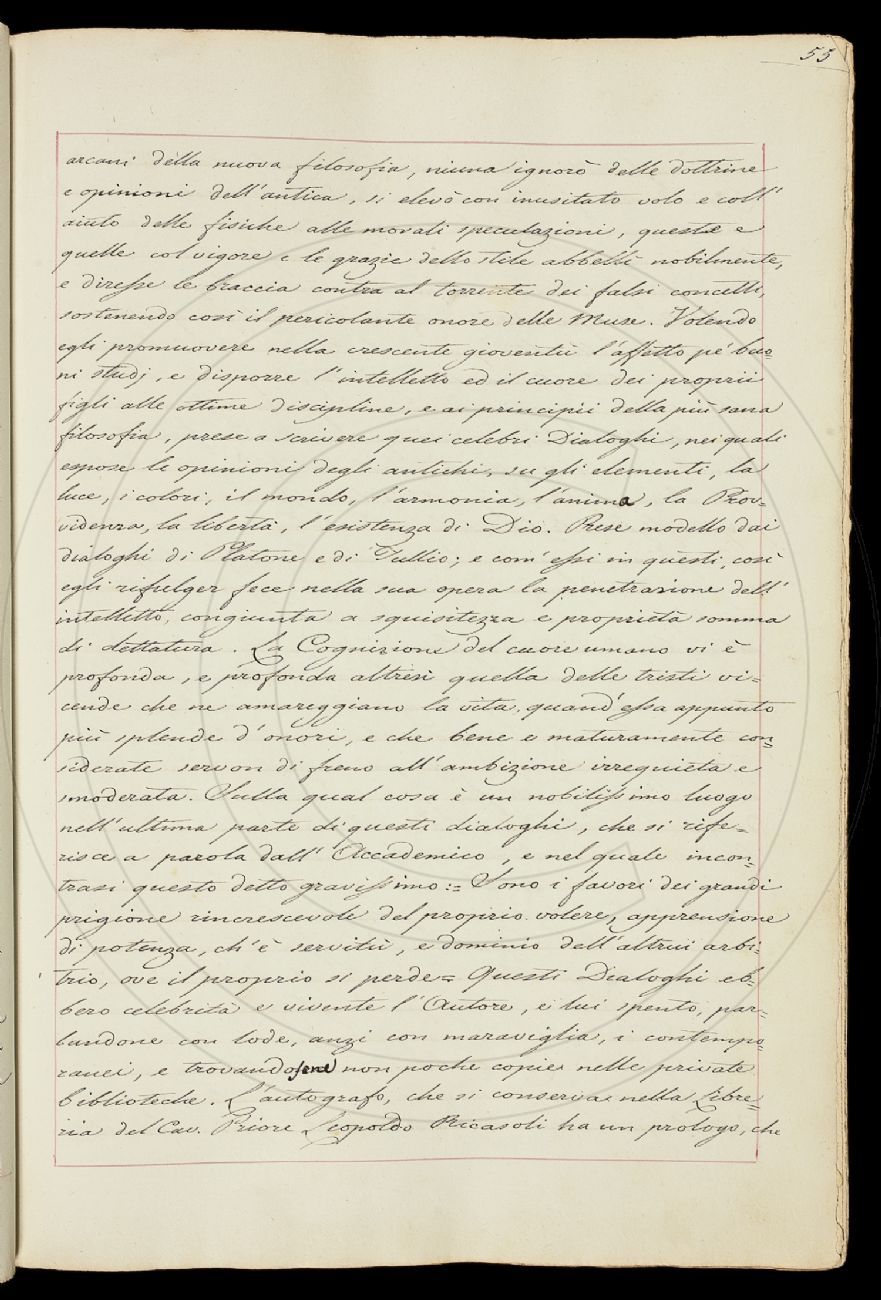 53
arcani della nuova filosofia, niuna ignorò delle dottrine
e opinioni dell'antica, si elevò con inusitato volo e coll'
aiuto delle fisiche alle morali speculazioni, queste e
quelle col vigore e le grazie dello stile abbellì nobilmente,
e diresse le braccia contra al torrente dei falsi concetti,
sostenendo così il pericolante onore delle Muse. Volendo
egli promuovere nella crescente gioventù l'affetto pe' buo=
ni studj, e disporre l'intelletto ed il cuore dei proprii
figli alle ottime discipline, e ai principii della più sana
filosofia, prese a scrivere quei celebri Dialoghi, nei quali
espose le opinioni degli antichi, su gli elementi, la
luce, i colori, il mondo, l'armonia, l'anima, la Prov=
videnza, la libertà, l'esistenza di Dio. Prese modello dai
dialoghi di Platone e di Tullio; e com'essi in questi, così
egli rifulger fece nella sua opera la penetrazione dell'
intelletto, congiunta a squisitezza e proprietà somma
di dettatura. La Cognizione del cuore umano vi è
profonda, e profonda altresì quella delle tristi vi=
cende che ne amareggiano la vita, quand'essa appunto
più splende d'onori, e che bene e maturamente con=
siderate servon di freno all'ambizione irrequieta e
smoderata. Sulla qual cosa è un nobilissimo luogo
nell'ultima parte di questi dialoghi, che si rife=
risce a parola dall'Accademico, e nel quale incon=
trasi questo detto gravissimo:= Sono i favori dei grandi
prigione rincrescevole del proprio volere, apprensione
di potenza, ch'è servitù, e dominio dell'altrui arbi=
trio, ove il proprio si perde= Questi Dialoghi eb=
bero celebrità e vivente l'Autore, e lui spento, par=
landone con lode, anzi con maraviglia, i contempo=
ranei, e trovandosene non poche copie nelle private
biblioteche. L'autografo, che si conserva nella Libre=
ria del Cav. Priore Leopoldo Ricasoli ha un prologo, che